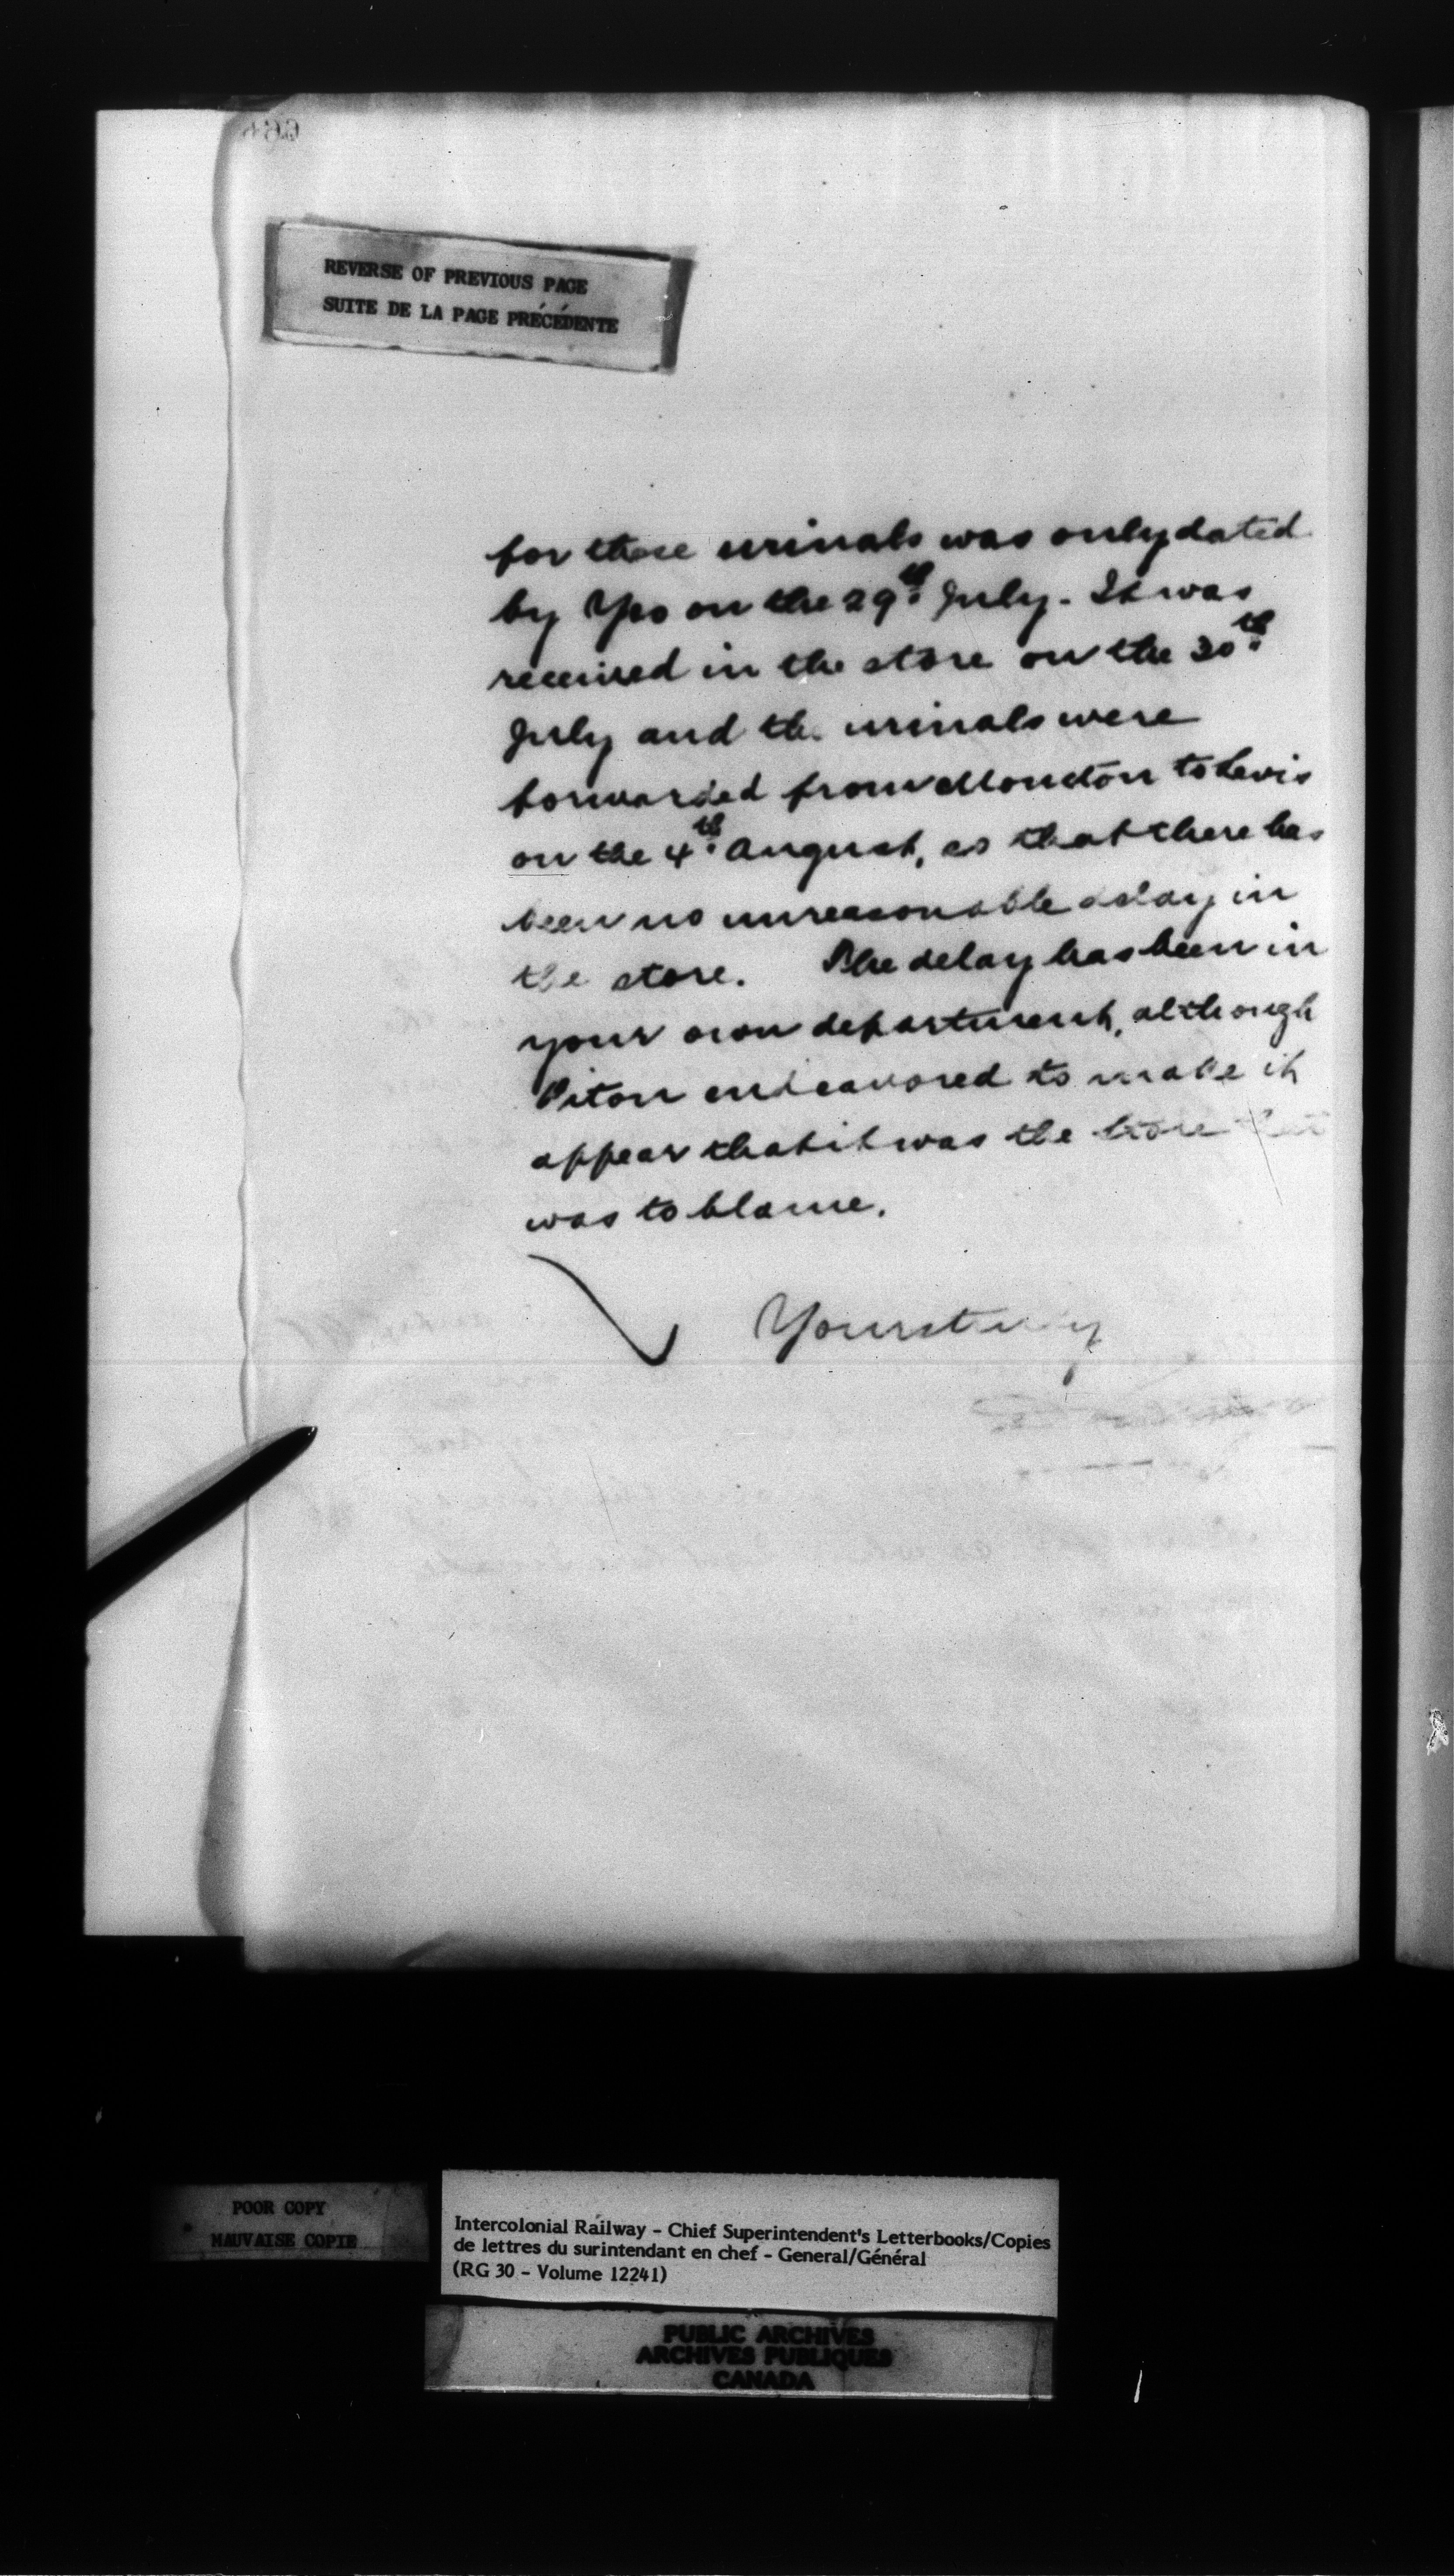 REVERSE OF PREVIOUS PAGE
SUITE DE LA PAGE PRÉCÉDENTE
for these urinals was only dated
by on the 29th July. It was
received in the store on the 30th
July and the urinals were
forwarded from Moncton to Levis
on the 4th August, so that there has
been no unreasonable delay in
the store. The delay has been in
your own department, although
Piton endeavored to make it
appear that it was the store that
was to blame.
Yours truly
POOR COPY
MAUVAISE COPIE
Intercolonial Railway - Chief Superintendent's Letterbooks/Copies
de lettres du surintendant en chef - General/Général
(RG 30 - Volume 12241)
PUBLIC ARCHIVES
ARCHIVES PUBLIQUES
CANADA